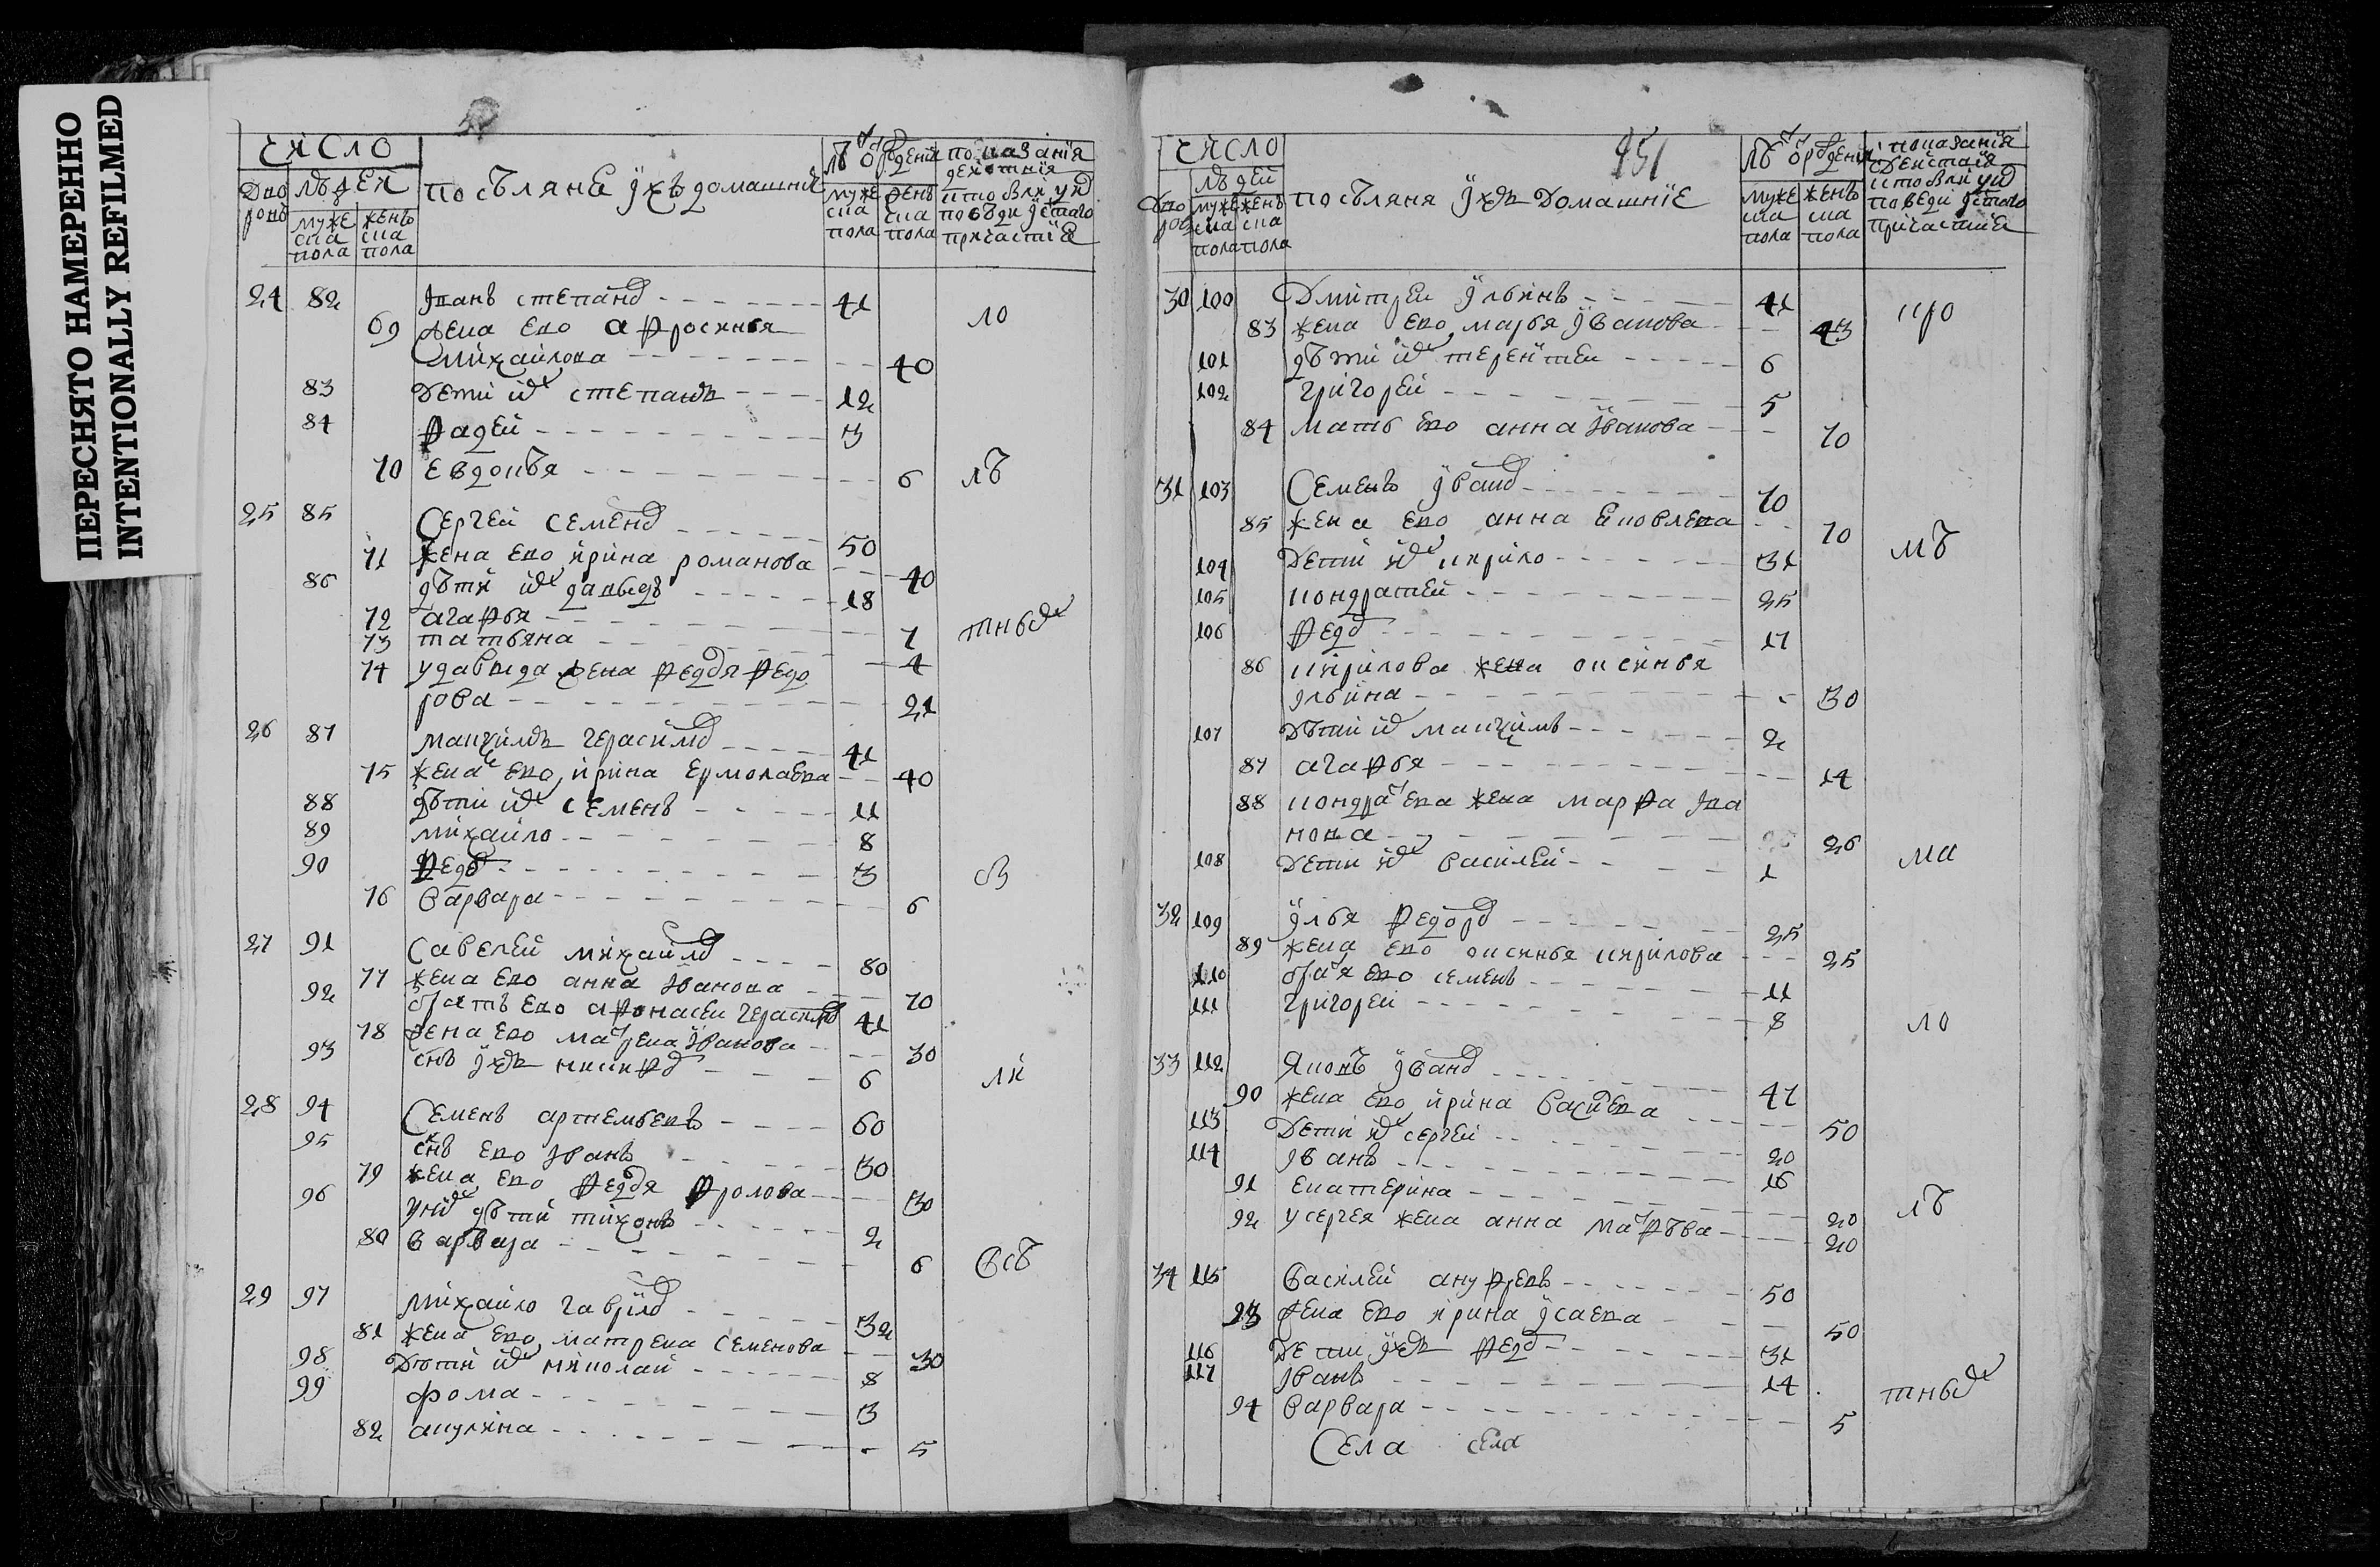 ПЕРЕСНЯТО НАМЕРЕННО
INTENTIONALLY REFILMED
число
людей
дворовъ
мужеска пола
женска пола
посѣляня ихъ домашнiе
мужеска пола
женска пола
показания
24 82 Иванъ степанов 41
69 жена ево афросинья
михаилова 40
ло
83 дети их степанъ 12
84 фадей 3
70 евдокѣя 6
лѣ
25 85 Сергей семенов 50
71 жена ево ирина романова 40
86 дѣти их давыдъ 18
72 агафья 7
73 татьяна 4
тных
74 у давыда жена федося федо
рова 21
26 87 маѯимъ герасимов 41
75 жена ево ирина ермолаева 40
88 дѣти их семенъ 11
89 михаило 8
90 федор 3
св
76 варвара 6
27 91 Савелей михаилов 80
77 жена ево анна иванова 70
92 братъ ево афонасеи герасимов 41
78 жена ево матрена иванова 30
93 снъ ихъ никифор 6
ли
28 94 Семенъ артемьевъ 60
95 снъ ево иванъ 30
79 жена ево федося фролова 30
96 у них дѣти тихонъ 2
80 варвара 6
всѣ
29 97 михаило гаврилов 32
81 жена ево матрена семенова 30
98 Дѣти их николаи 8
99 фома 3
82 акулина 5
число
951
людей
дворовъ
мужеска пола
женска пола
посѣляня ихъ домашнiе
мужеска пола
женска пола
показания
30 100 Дмитреи ильинъ 41
83 жена ево марья иванова 43
про
101 дѣти их терентеи 6
102 григореи 5
84 мать ево анна иванова 70
31 103 Семенъ иванов 70
85 жена ево анна яковлева 70
мѣ
104 Дети их кирило 31
105 кондратей 25
106 федор 17
86 кирилова жена оксинья
ильина 30
107 Дѣти их маѯимъ 2
87 агафья 14
88 кондратева жена марфа ива
нова 26
108 Дети их василей 1
ма
32 109 илья федоров 25
89 жена ево оксинья кирилова 25
110 братя ево семенъ 11
111 григореи 8
ло
33 112 Яковъ иванов 47
90 жена ево ирина васильева 50
113 Дети их сергеи 20
114 иванъ 16
91 екатерина 20
лѣ
92 у сергея жена анна матфѣева 20
34 115 василей ануфревъ 50
93 жена ево ирина исаева 50
116 Дети ихъ федор 31
117 иванъ 14
тных
94 варвара 5
Села села